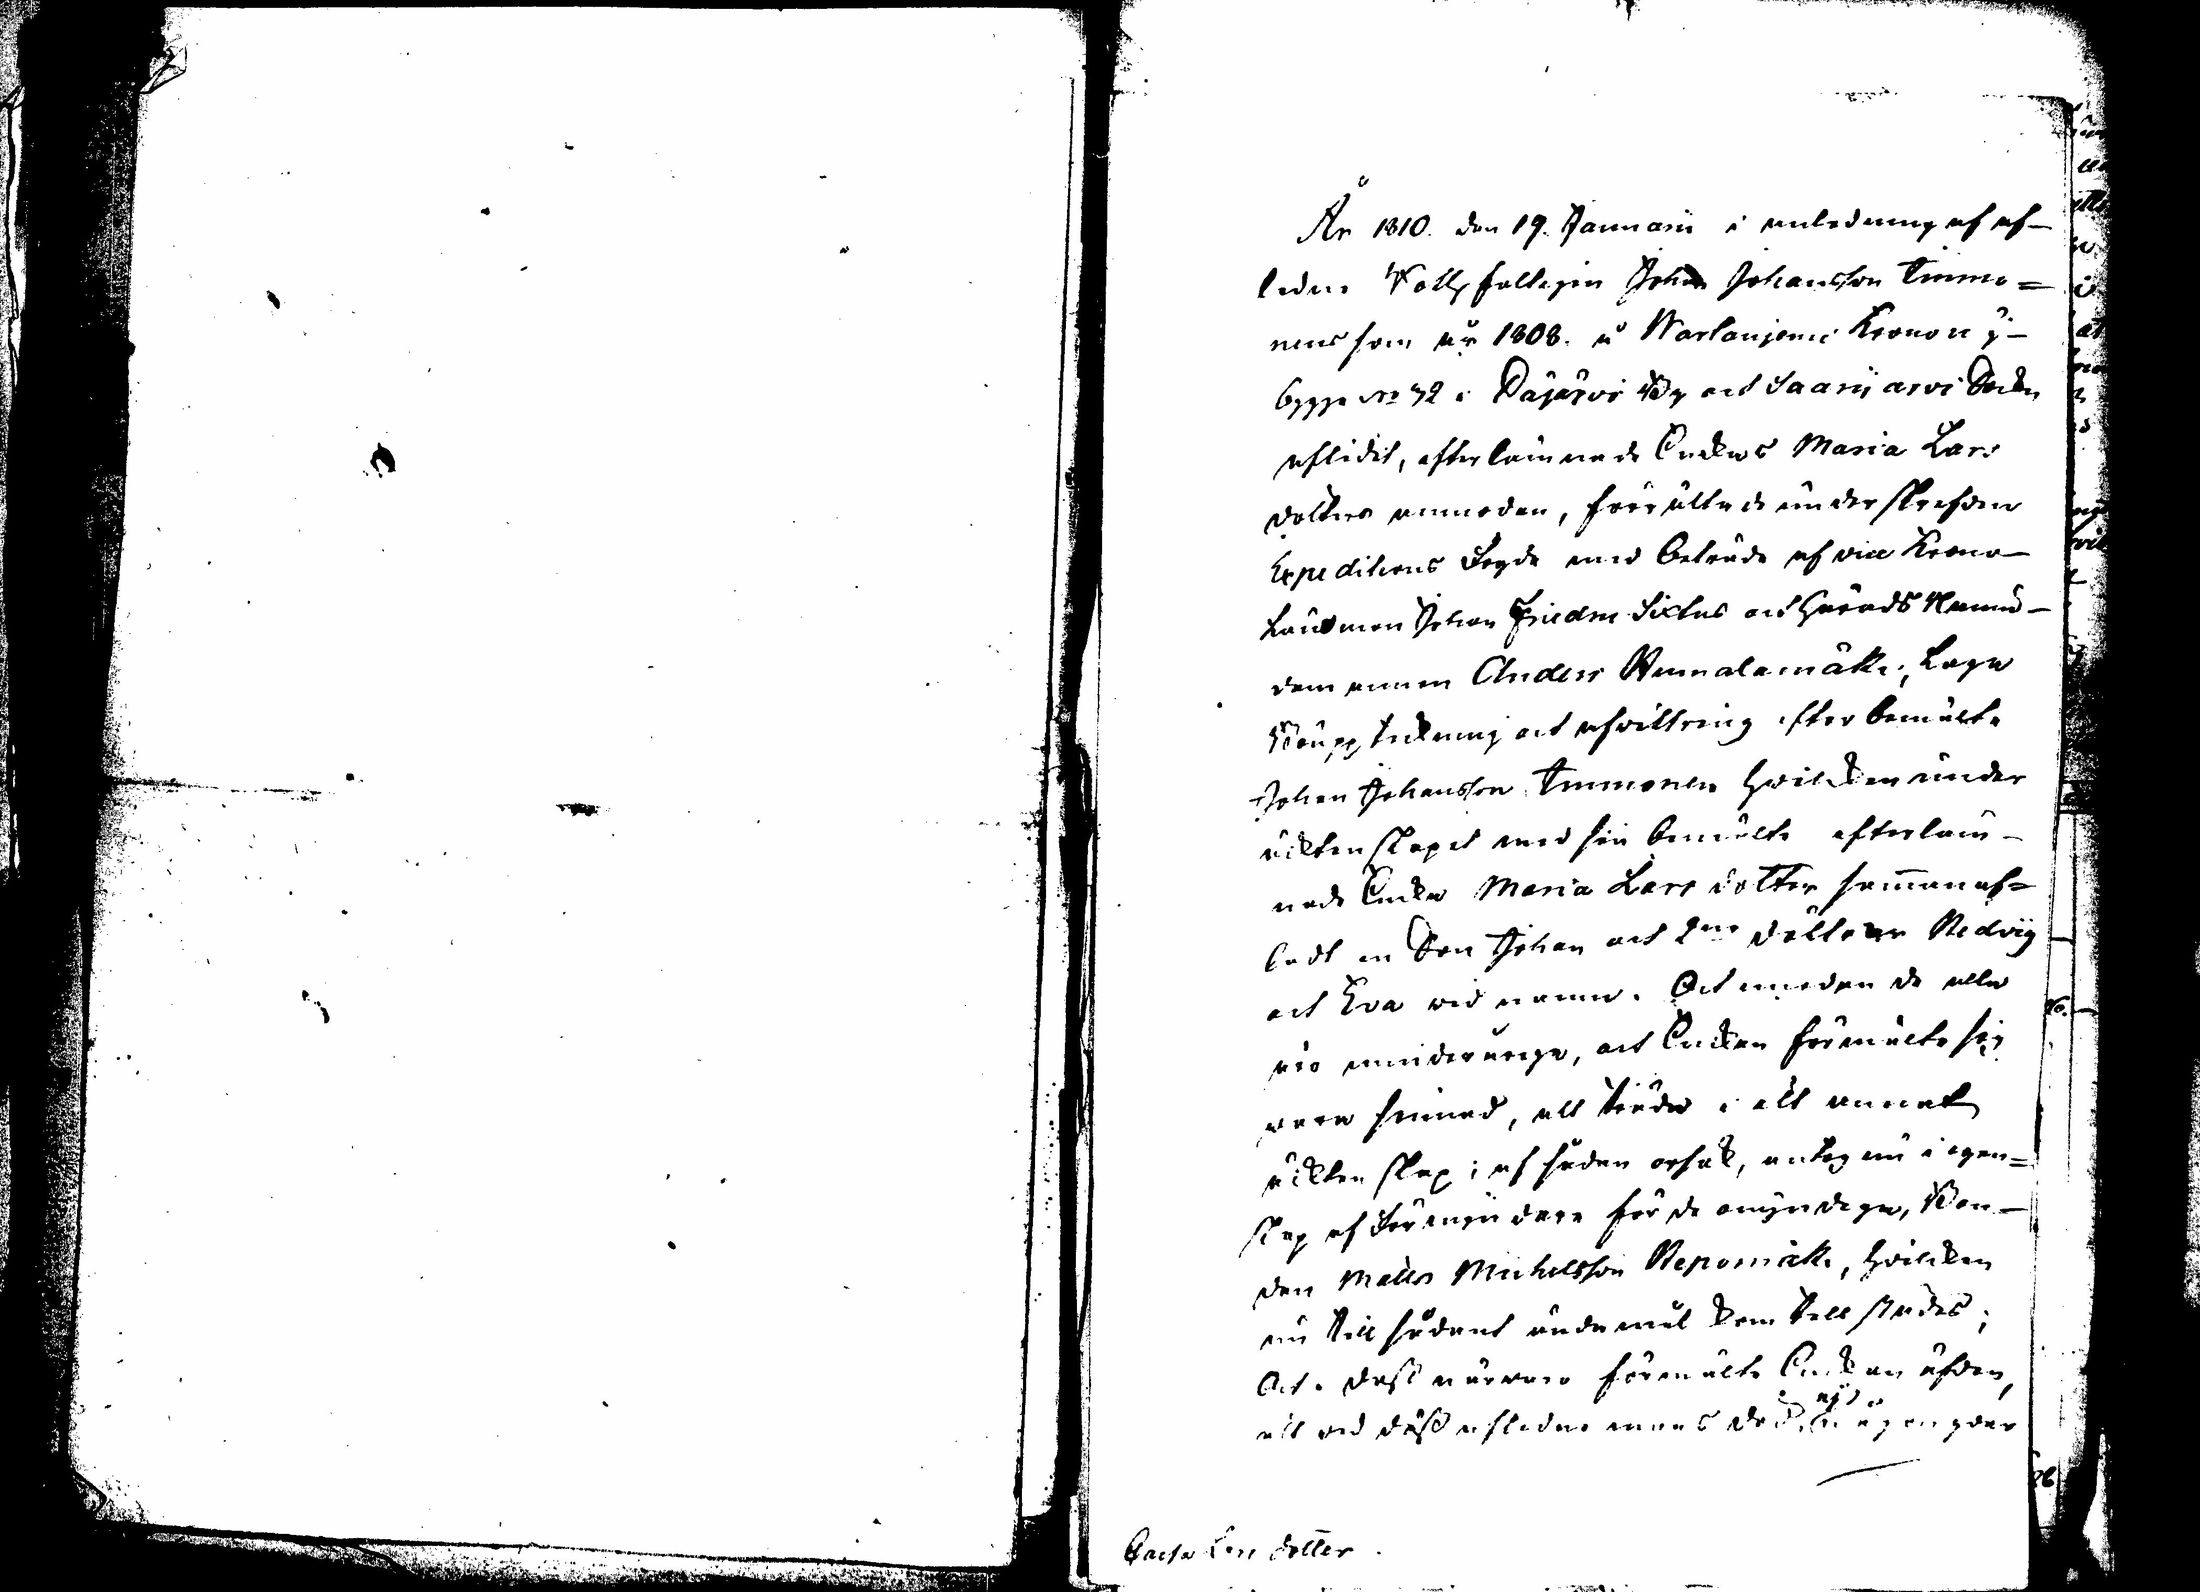 År 1810. den 19. Januarii i anledning af af-
ledne Johan Johansson Timmo=
nens som år 1808. å Warlanjemi Kronon ÿ-
bygge No 72 i Pajärvi By och Saarijärvi Sockn
aflidit, efterlämnade Enckans Maria Lars
dotters anmodan, förrättade underskrefven
Expeditions Fogde med biträde af vice Krono-
länsman Johan Friedric Sixtus och Härads Nämn-
demannen Anders Hännalamäki, Laga
Bouppteckning och afwittring efter bemälte
Johan Johansson Timmonen hwilcken under
ächtenskapet med sin bemälte efterläm-
nade Encka Maria Lars dotter sammanaf=
ladt en Son Johan och 2ne döttrar Hedvig
och Eva wid namn. Och medan de alla
äro minderårige, och Enckan förmälte sig
vara sinnad, att träda i ett annat
ächtenskap; af sådan orsak, antog nu i egen=
skap af Förmyndare för de omyndiga, Bon-
den Matts Michelsson Repomäki, hwilcken
nu till sådant ändamål kom tillstädes;
Och. dess närvaro förmälte Enckan äfven,
att wid dess aflidne mans död, ej någon qvar
Lars dotter.